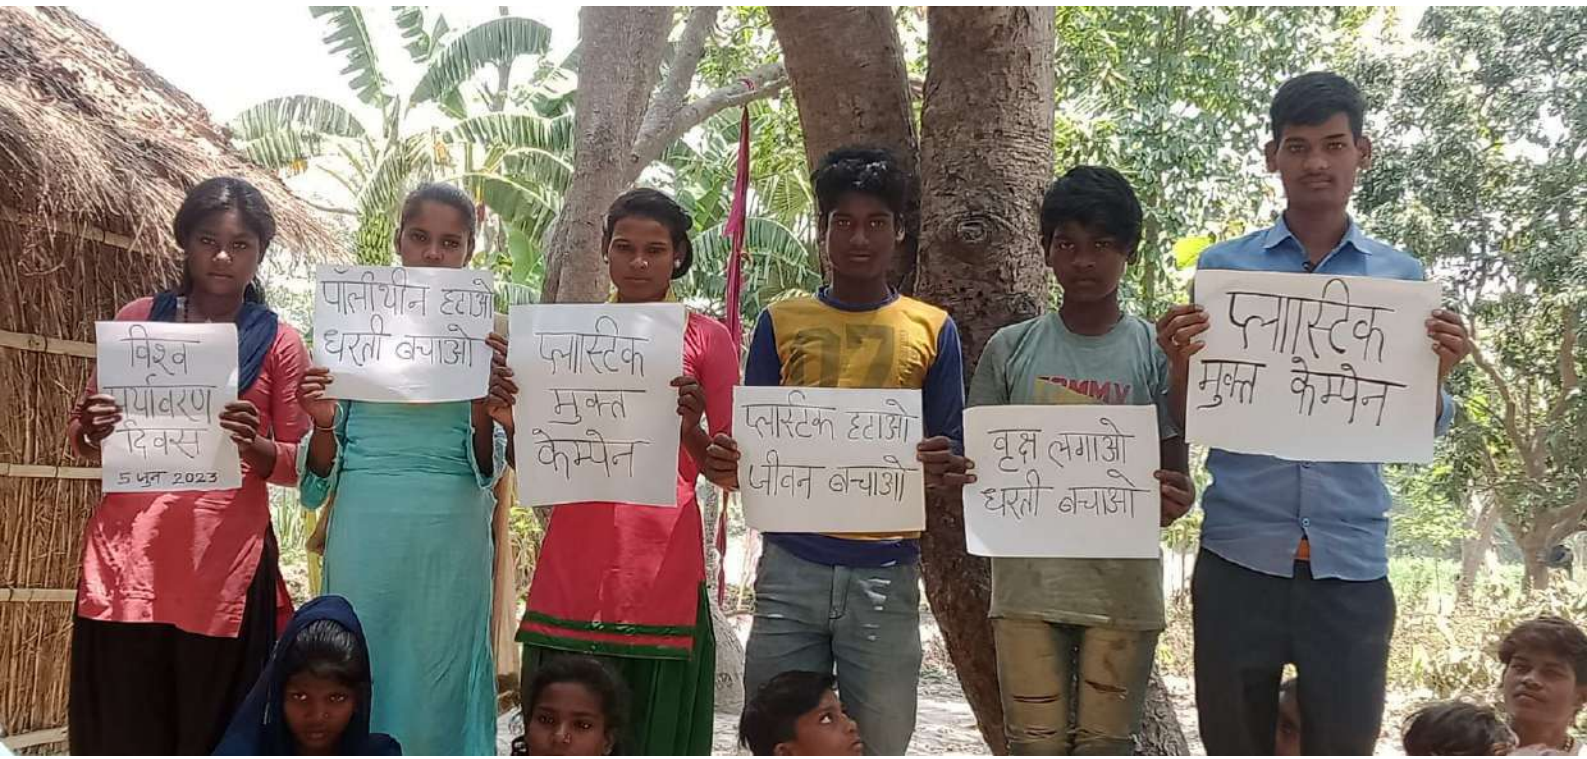 विश्व
पर्यावरण
दिवस
5 जुन 2023
पॉलीथीन हटाओ
धरती बचाओ
प्लास्टिक
मुक्त
केम्पेन
प्लास्टिक हटाओ
जीवन बचाओ
वृक्ष लगाओ
धरती बचाओ
प्लास्टिक
मुक्त केम्पेन
07
TOMMY